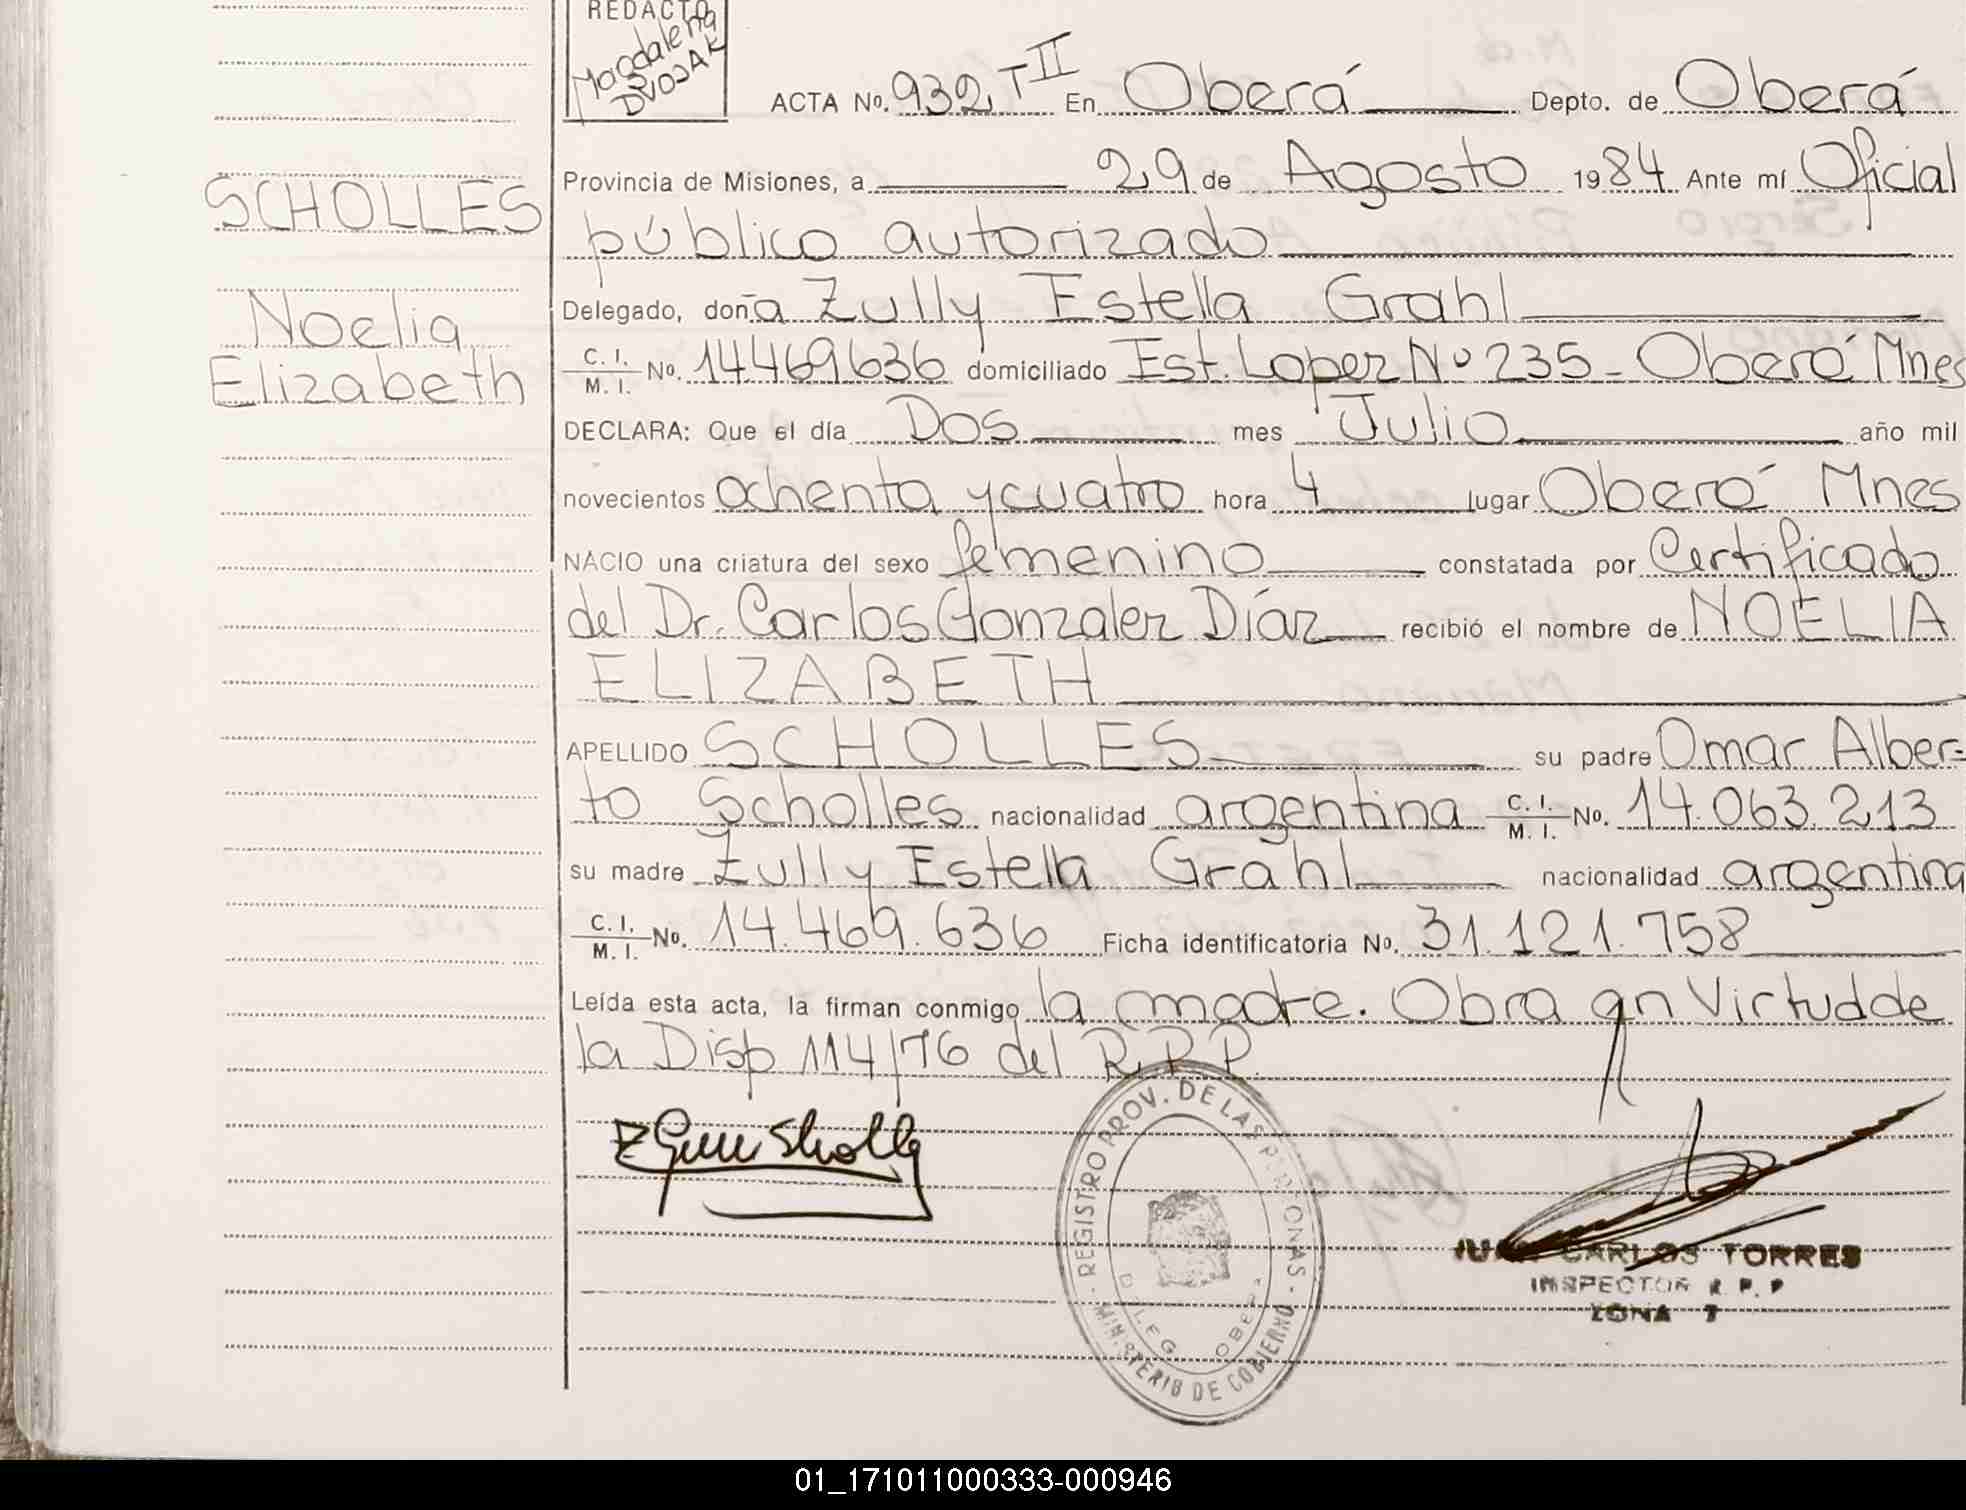 REDACTO
Magdalena
DVOJAK
ACTA No. 932 T II En Oberá Depto. de Oberá
SCHOLLES
Noelia
Elizabeth
Provincia de Misiones, a 29 de Agosto 1984 Ante mí Oficial
público autorizado
Delegado, doña Zully Estella Grahl
C. I. / M. I. No. 14469636 domiciliado Est. Lopez Nº 235 - Oberá Mnes
DECLARA: Que el día Dos mes Julio año mil
novecientos ochenta y cuatro hora 4 lugar Oberá Mnes
NACIO una criatura del sexo femenino constatada por Certificado
del Dr. Carlos Gonzalez Díaz recibió el nombre de NOELIA
ELIZABETH
APELLIDO SCHOLLES su padre Omar Alber=
to Scholles nacionalidad argentina C. I. / M. I. No. 14.063.213
su madre Zully Estella Grahl nacionalidad argentina
C. I. / M. I. No. 14.469.636 Ficha identificatoria No. 31.121.758
Leída esta acta, la firman conmigo la madre. Obra en Virtud de
la Disp 114/76 del R.P.P.
REGISTRO PROV. DE LAS PERSONAS
MINISTERIO DE GOBIERNO
DELEG. OBERA
JUAN CARLOS TORRES
INSPECTOR R. P. P
ZONA 7
01_171011000333-000946